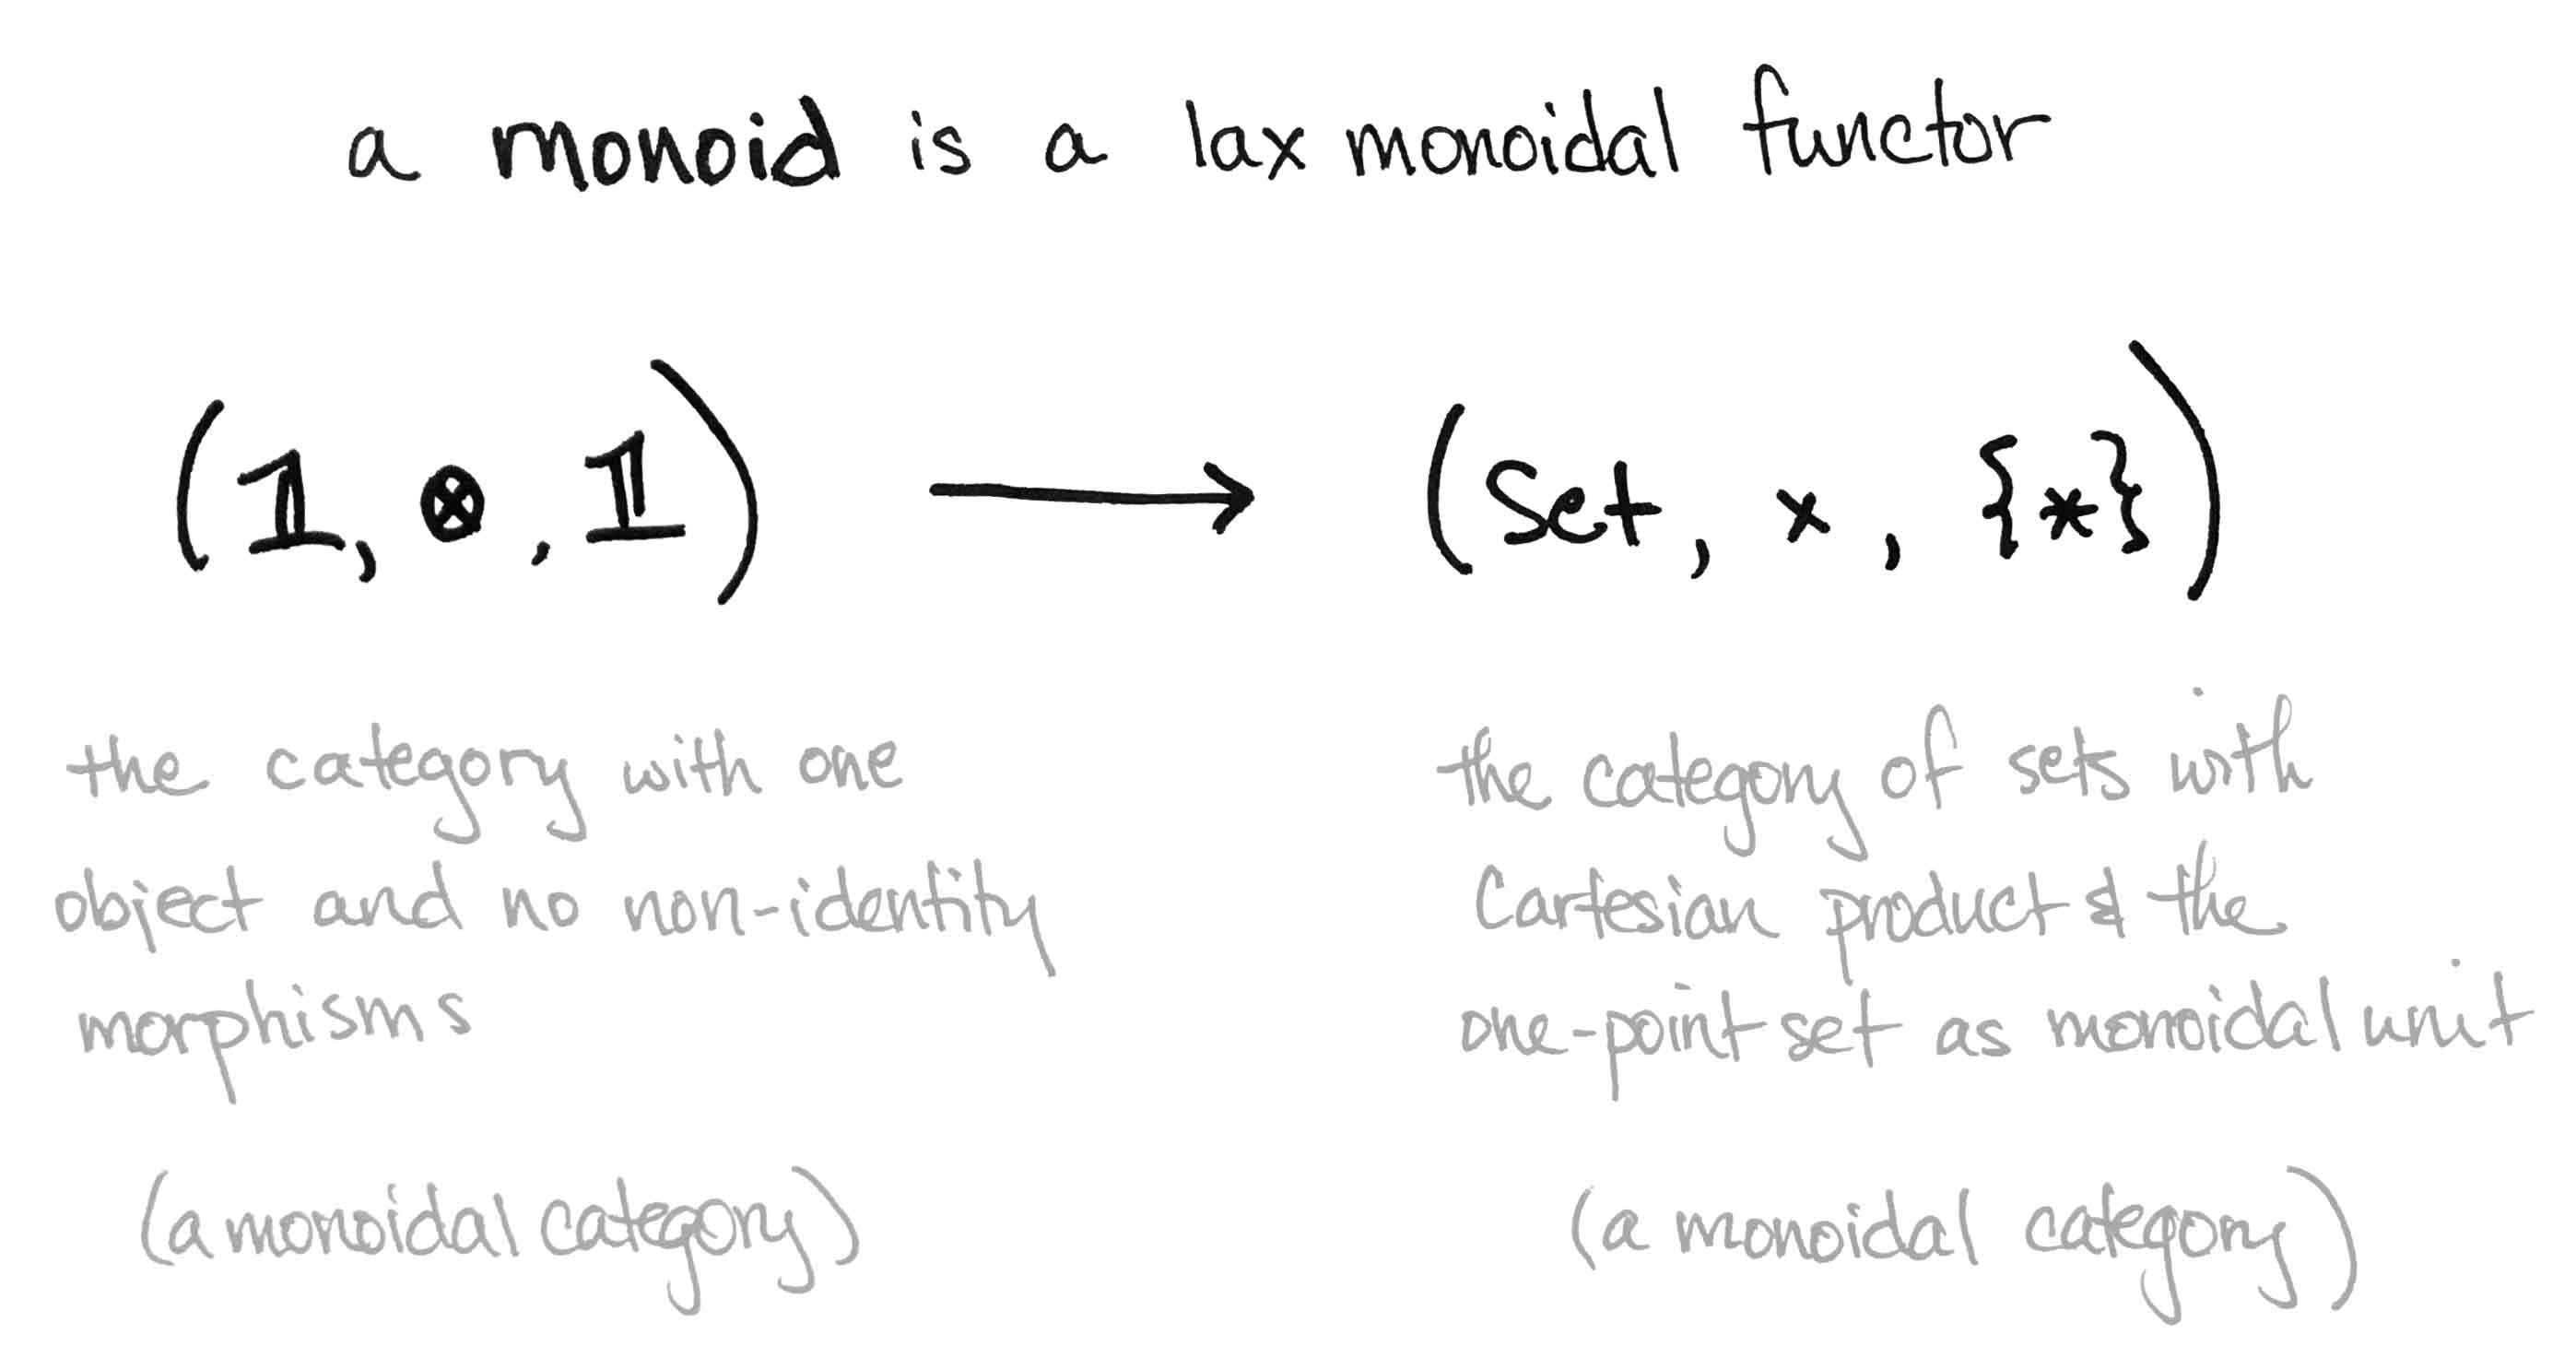 a monoid is a lax monoidal functor
(𝟙, ⊗, 𝟙) ⟶ (Set, ×, {*})
the category with one
object and no non-identity
morphisms
(a monoidal category)
the category of sets with
Cartesian product & the
one-point set as monoidal unit
(a monoidal category)